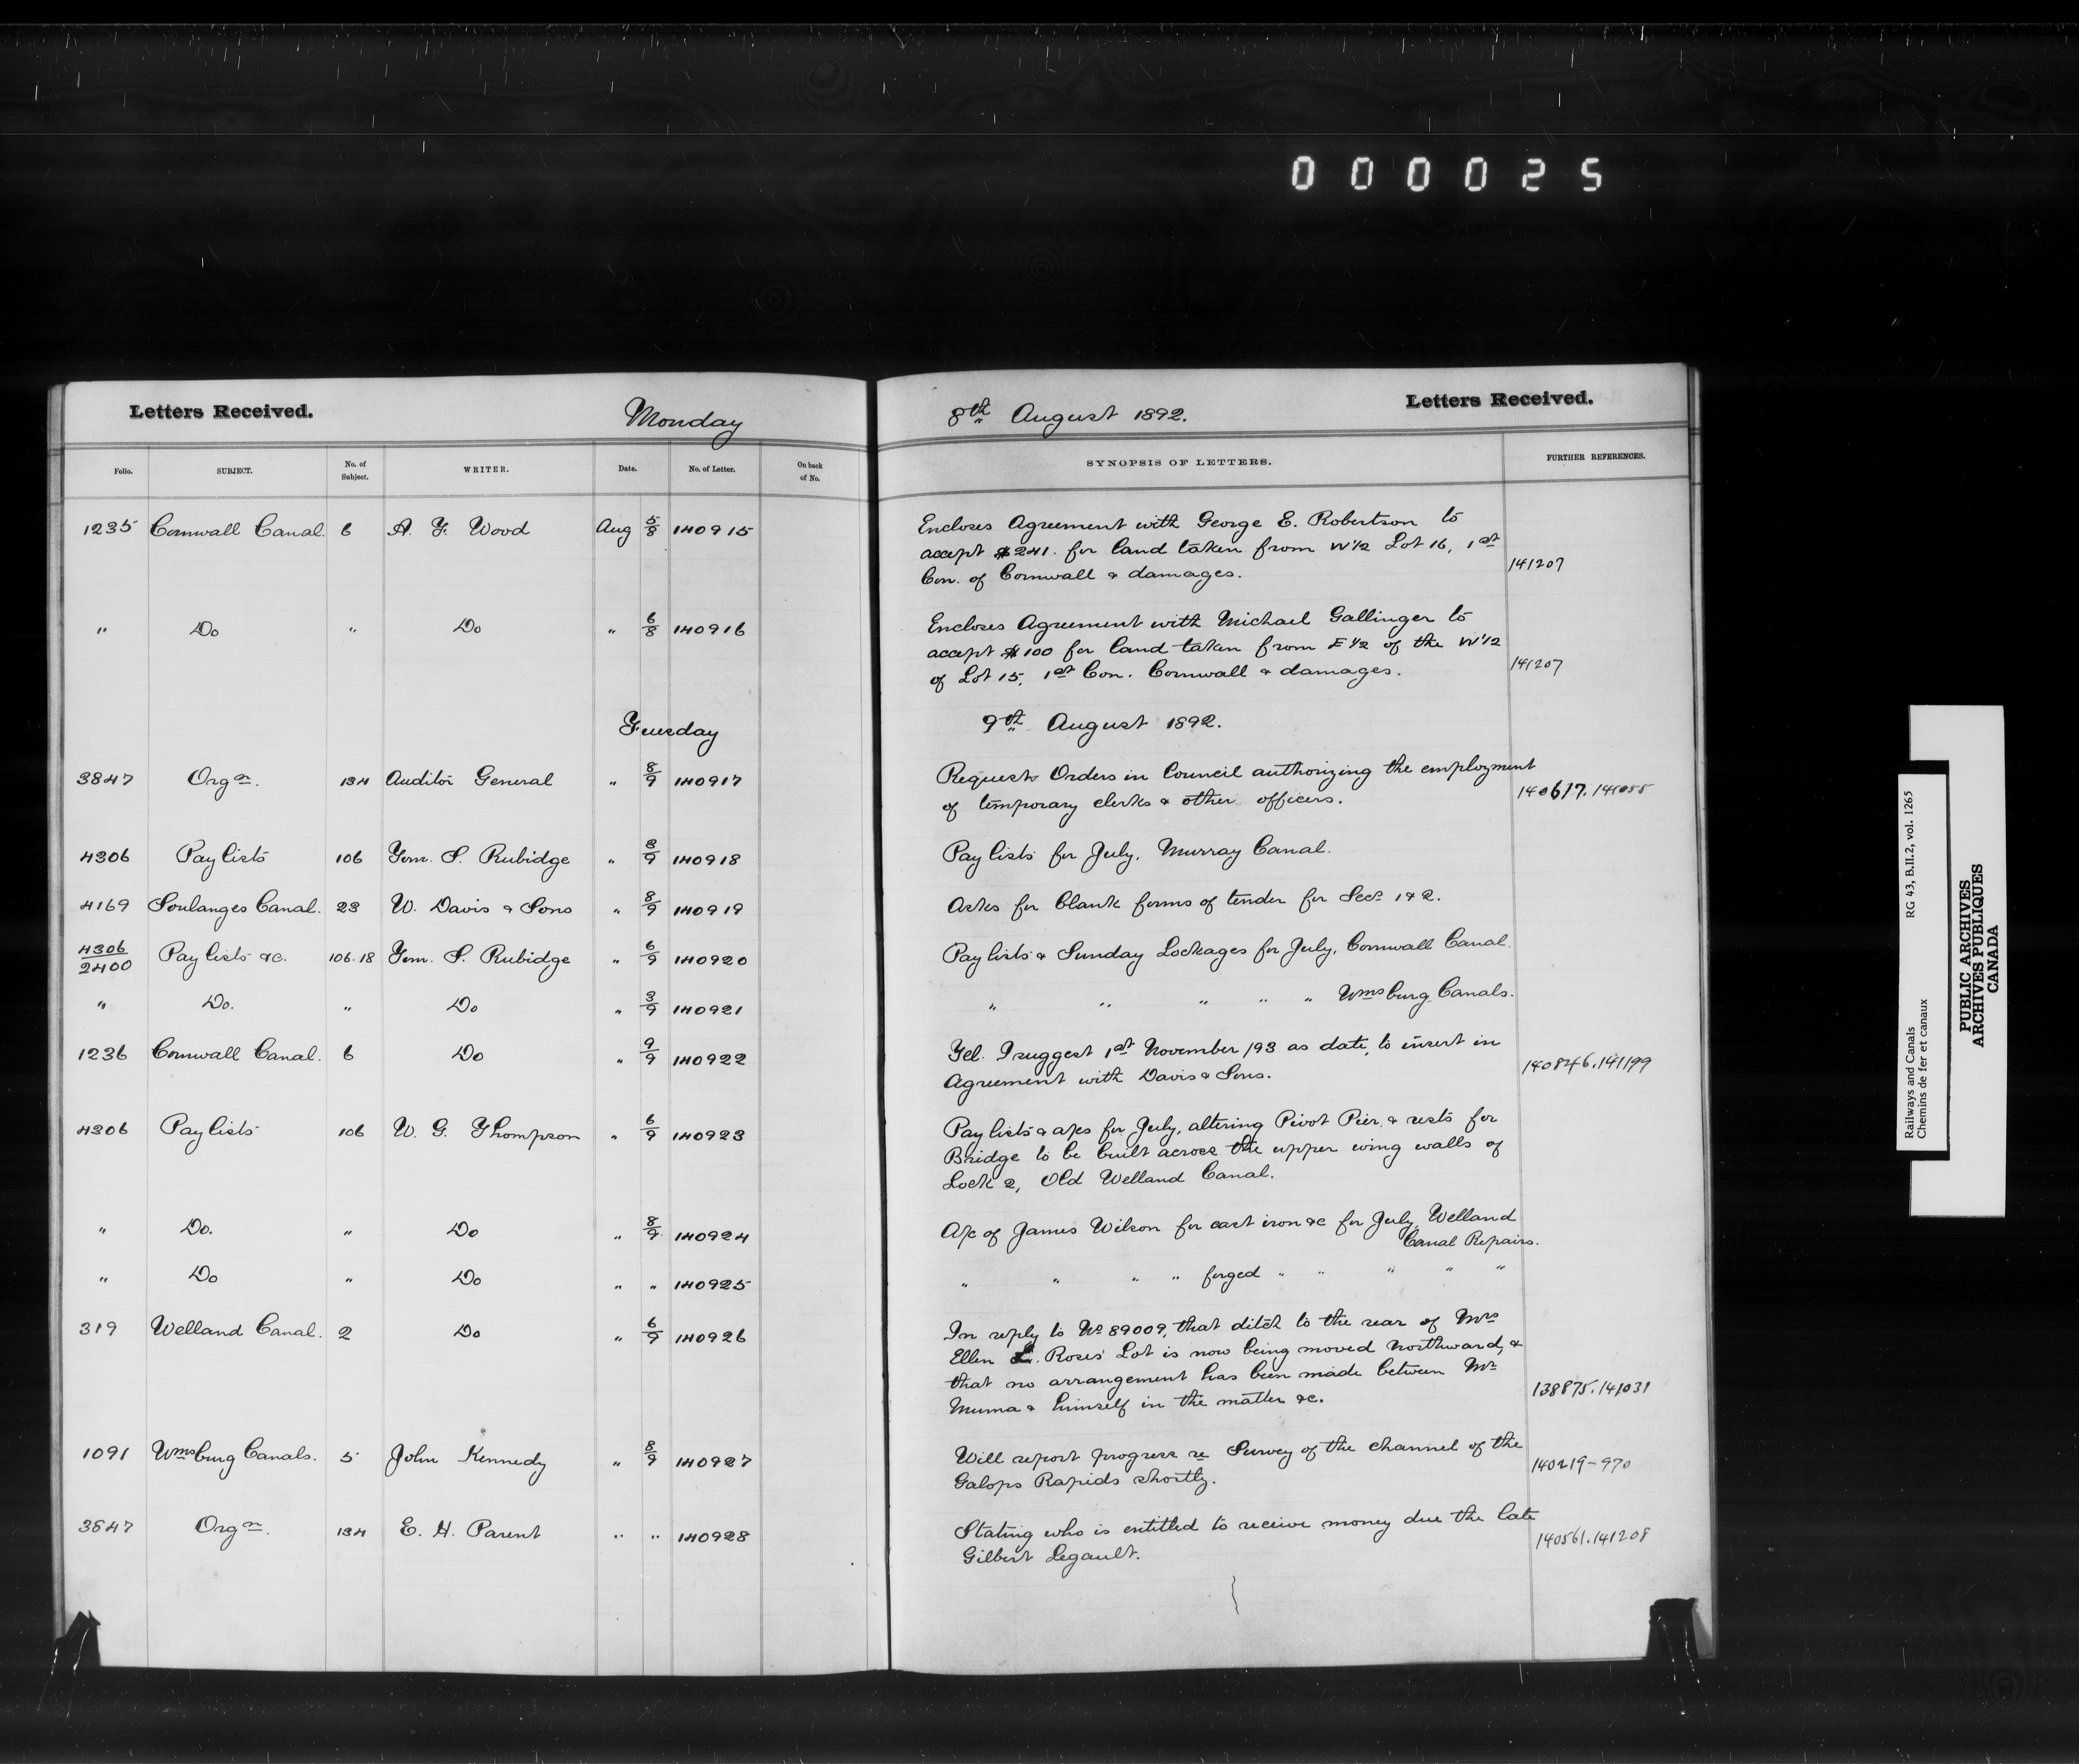 000025
Letters Received.
Monday
8th August 1892.
Letters Received.
Folio. SUBJECT. No. of Subject. WRITER. Date. No. of Letter. On back of No. SYNOPSIS OF LETTERS. FURTHER REFERENCES.
1235 Cornwall Canal. 6 A. F. Wood Aug 5/8 140915 Encloses Agreement with George E. Robertson to
accept $241. for land taken from W 1/2 Lot 16, 1st
Con. of Cornwall & damages. 141207
" Do " Do " 6/8 140916 Encloses Agreement with Michael Gallinger to
accept $100 for land taken from E 1/2 of the W 1/2
of Lot 15, 1st Con. Cornwall & damages. 141207
Tuesday 9th August 1892.
3847 Orgn. 134 Auditor General " 8/9 140917 Requests Orders in Council authorizing the employment
of temporary clerks & other officers. 140617. 141055
4306 Pay lists 106 Tom. S. Rubidge " 8/9 140918 Pay lists for July, Murray Canal.
4169 Soulanges Canal. 23 W. Davis & Sons " 8/9 140919 Asks for blank forms of tender for Secs. 1 & 2.
4306/2400 Pay lists &c. 106.18 Tom. S. Rubidge " 6/9 140920 Pay lists & Sunday Lockages for July, Cornwall Canal.
" Do. " Do " 3/9 140921 " " " " " Wmsburg Canals.
1236 Cornwall Canal. 6 Do " 9/9 140922 Tel. I suggest 1st November /93 as date, to insert in
Agreement with Davis & Sons. 140846. 141199
4306 Pay lists 106 W. G. Thompson " 6/9 140923 Pay lists & a/cs for July, altering Pivot Pier, & rests for
Bridge to be built across the upper wing walls of
Lock 2, Old Welland Canal.
" Do. " Do " 8/9 140924 A/c of James Wilson for cast iron &c for July, Welland
Canal Repairs.
" Do " Do " " 140925 " " " " forged " " " " "
319 Welland Canal. 2 Do " 6/9 140926 In reply to No 89009, that ditch to the rear of Mrs
Ellen L. Roses' Lot is now being moved Northward, &
that no arrangement has been made between Mr
Muma & himself in the matter &c. 138875. 141031
1091 Wmsburg Canals. 5 John Kennedy " 8/9 140927 Will report progress re Survey of the channel of the
Galops Rapids shortly. 140219-970
3847 Orgn. 134 E. H. Parent " " 140928 Stating who is entitled to receive money due the late
Gilbert Legault. 140561. 141208
Railways and Canals RG 43, B.II.2, vol. 1265
Chemins de fer et canaux
PUBLIC ARCHIVES
ARCHIVES PUBLIQUES
CANADA